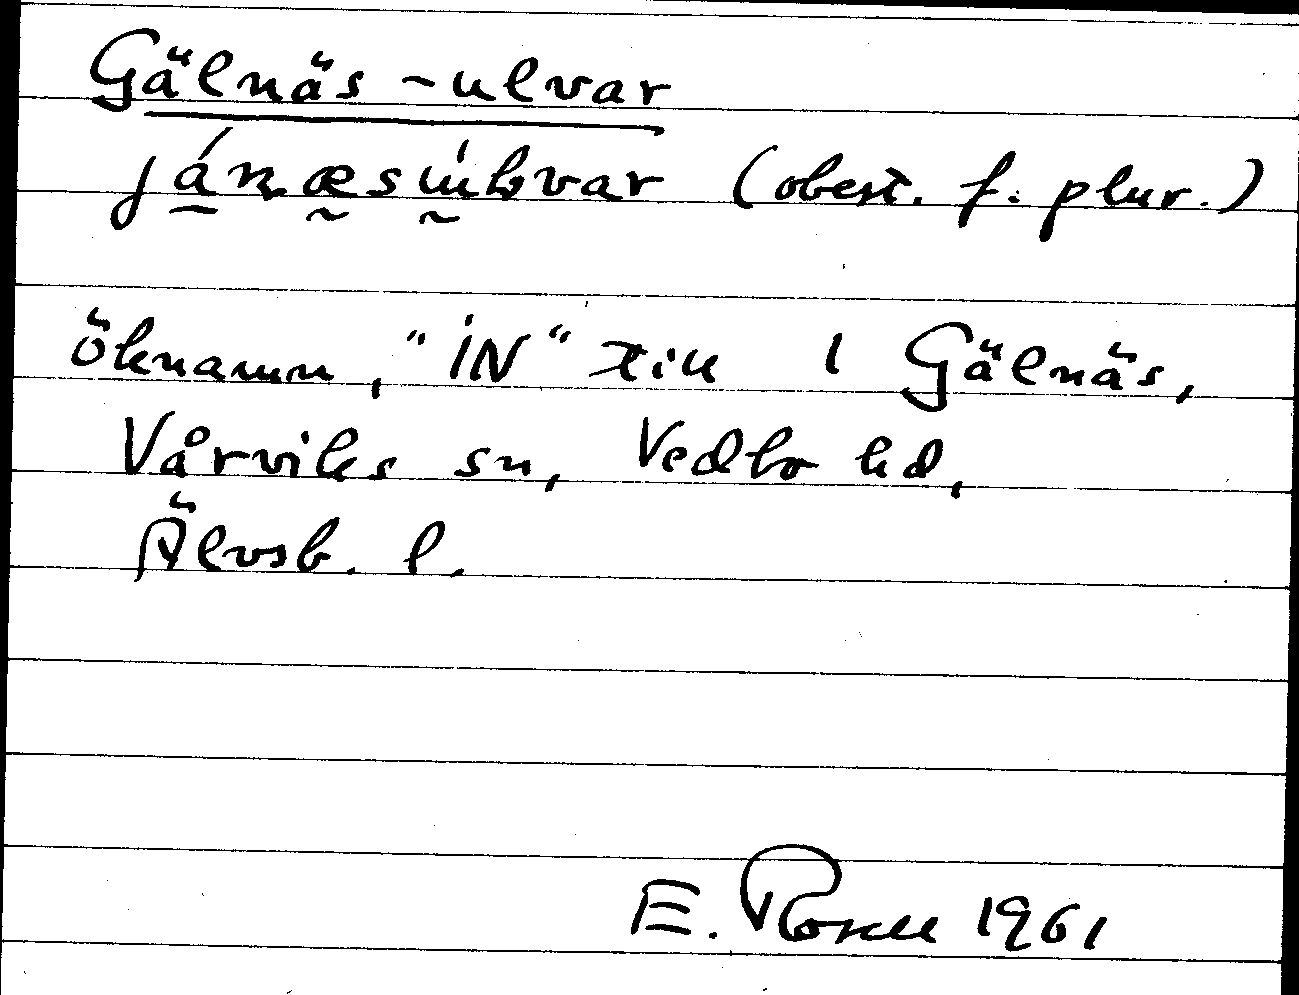 Gälnäs-ulvar
(obest. f. plur.)
öknamn, "IN" till 1 Gälnäs,
Vårviks sn, Vedbo hd,
Älvsb. l.
E. 1961